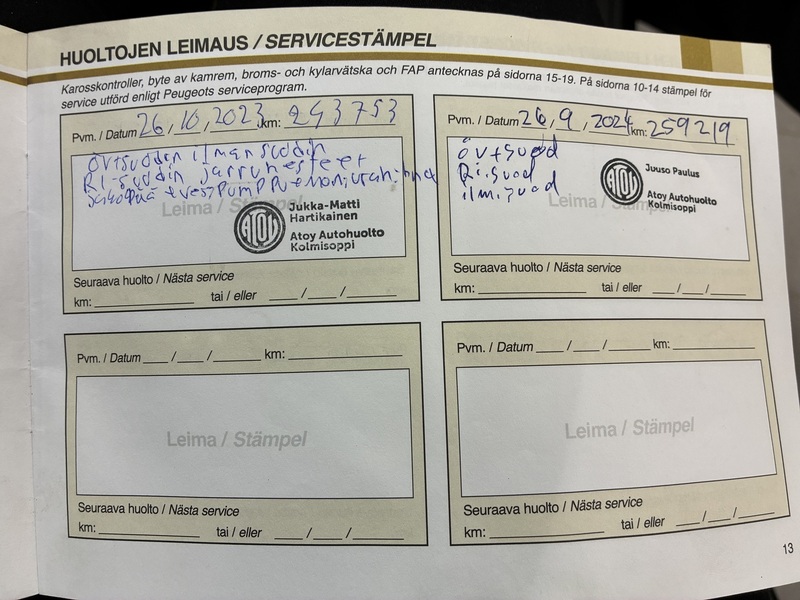 HUOLTOJEN LEIMAUS / SERVICESTÄMPEL
Karosskontroller, byte av kamrem, broms- och kylarvätska och FAP antecknas på sidorna 15-19. På sidorna 10-14 stämpel för
service utförd enligt Peugeots serviceprogram.
Pvm. / Datum 26, 10, 2023 km: 243753
övtsuddin ilmansuddin
Ri-suddin jarrunesteet
Leima / Stämpel
ATOY
Jukka-Matti
Hartikainen
Atoy Autohuolto
Kolmisoppi
Seuraava huolto / Nästa service
km: tai / eller / /
Pvm. / Datum 26, 9, 2024 km: 259219
övtsuod
Ri.suod
ilmi.suod
Leima / Stämpel
ATOY
Juuso Paulus
Atoy Autohuolto
Kolmisoppi
Seuraava huolto / Nästa service
km: tai / eller / /
Pvm. / Datum / / km:
Leima / Stämpel
Seuraava huolto / Nästa service
km: tai / eller / /
Pvm. / Datum / / km:
Leima / Stämpel
Seuraava huolto / Nästa service
km: tai / eller / /
13